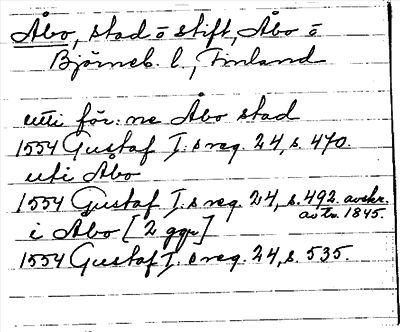 Åbo, stad o stift, Åbo o
Björneb. l., Finland
utti för:ne Åbo stad
1554 Gustaf I:s reg. 24, s. 470.
uti Åbo
1554 Gustaf I:s reg. 24, s. 492. avskr.
av tr. 1845.
i Åbo [2 ggr]
1554 Gustaf I:s reg. 24, s. 535.